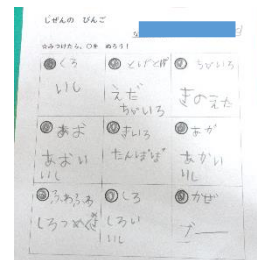 しぜんの びんご
☆みつけたら、○を ぬろう！
くろ
いし
とげとげ
えだ
ちゃいろ
ちゃいろ
きのえだ
あお
あおい
いし
きいろ
たんぽぽ
あか
あかい
いし
ふわふわ
しろつめくさ
しろ
しろい
いし
かぜ